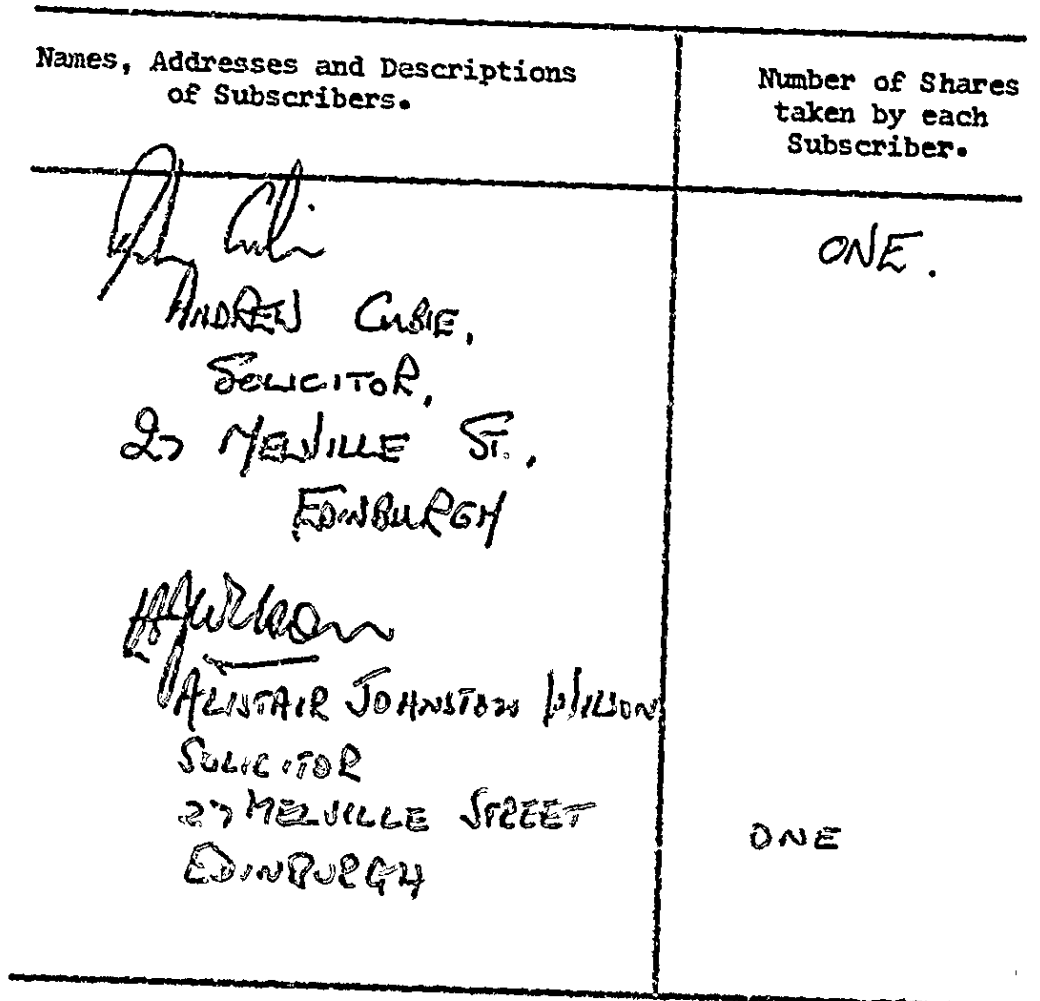 Names, Addresses and Descriptions
of Subscribers.
Number of Shares
taken by each
Subscriber.
ONE.
ANDREW CUBIE,
SOLICITOR,
27 MELVILLE ST.,
EDINBURGH
AJWilson
ALISTAIR JOHNSTON WILSON
SOLICITOR
27 MELVILLE STREET
EDINBURGH
ONE